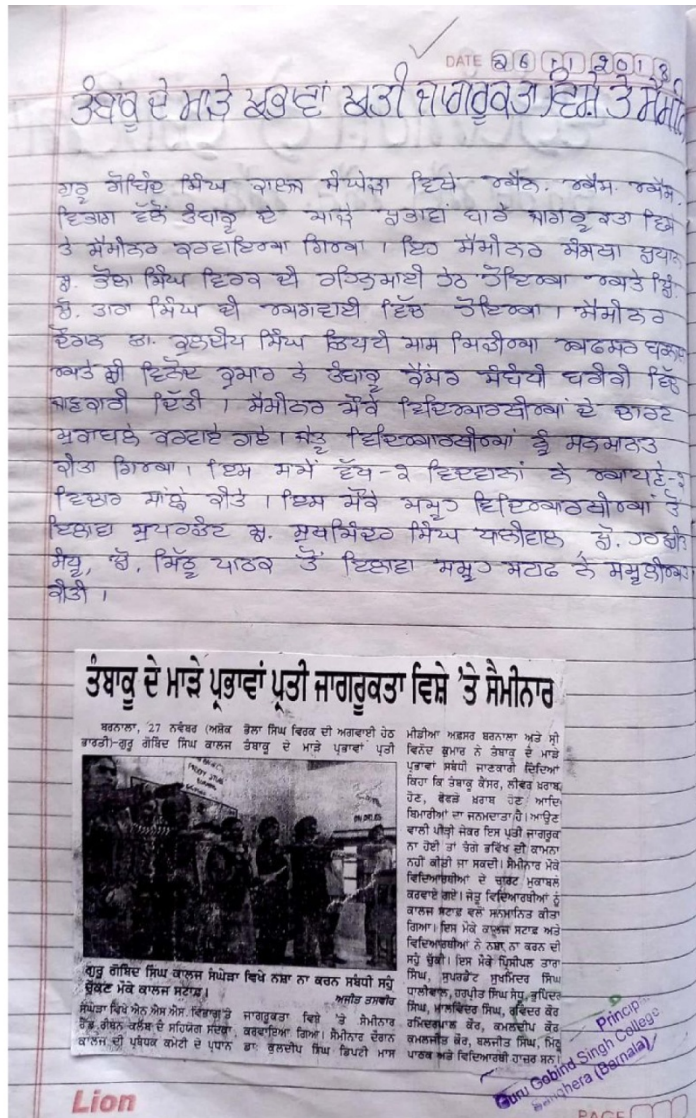 DATE 26 11 2018
ਤੰਬਾਕੂ ਦੇ ਮਾੜੇ ਪ੍ਰਭਾਵਾਂ ਪ੍ਰਤੀ ਜਾਗਰੂਕਤਾ ਵਿਸ਼ੇ ਤੇ ਸੈਮੀਨਾਰ
ਗੁਰੂ ਗੋਬਿੰਦ ਸਿੰਘ ਕਾਲਜ ਸੰਘੇੜਾ ਵਿਖੇ ਐਨ. ਐਸ. ਐਸ.
ਵਿਭਾਗ ਵੱਲੋਂ ਤੰਬਾਕੂ ਦੇ ਮਾੜੇ ਪ੍ਰਭਾਵਾਂ ਬਾਰੇ ਜਾਗਰੂਕਤਾ ਵਿਸ਼ੇ
ਤੇ ਸੈਮੀਨਰ ਕਰਵਾਇਆ ਗਿਆ । ਇਹ ਸੈਮੀਨਰ ਸੰਸਥਾ ਪ੍ਰਧਾਨ
ਸ. ਭੋਲਾ ਸਿੰਘ ਵਿਰਕ ਦੀ ਰਹਿਨੁਮਾਈ ਹੇਠ ਹੋਇਆ ਅਤੇ ਪ੍ਰਿੰ.
ਸ. ਤਾਰਾ ਸਿੰਘ ਦੀ ਅਗਵਾਈ ਵਿੱਚ ਹੋਇਆ । ਸੈਮੀਨਰ
ਦੌਰਾਨ ਡਾ. ਕੁਲਦੀਪ ਸਿੰਘ ਡਿਪਟੀ ਮਾਸ ਮਿਡੀਆ ਅਫਸਰ ਬਰਨਾਲਾ
ਅਤੇ ਸ਼੍ਰੀ ਵਿਨੋਦ ਕੁਮਾਰ ਨੇ ਤੰਬਾਕੂ ਕੈਂਸਰ ਸੰਬੰਧੀ ਬਰੀਕੀ ਵਿੱਚ
ਜਾਣਕਾਰੀ ਦਿੱਤੀ । ਸੈਮੀਨਰ ਮੌਕੇ ਵਿਦਿਆਰਥੀਆਂ ਦੇ ਚਾਰਟ
ਮੁਕਾਬਲੇ ਕਰਵਾਏ ਗਏ। ਜੇਤੂ ਵਿਦਿਆਰਥੀਆਂ ਨੂੰ ਸਨਮਾਨਤ
ਕੀਤਾ ਗਿਆ । ਇਸ ਸਮੇਂ ਵੱਖ-੨ ਵਿਦਵਾਨਾਂ ਨੇ ਆਪਣੇ-੨
ਵਿਚਾਰ ਸਾਂਝੇ ਕੀਤੇ । ਇਸ ਮੌਕੇ ਸਮੂਹ ਵਿਦਿਆਰਥੀਆਂ ਤੋਂ
ਇਲਾਵਾ ਸੁਪਰਡੈਂਟ ਸ. ਸੁਖਮਿੰਦਰ ਸਿੰਘ ਧਾਲੀਵਾਲ, ਪ੍ਰੋ. ਹਰਪ੍ਰੀਤ
ਸੰਧੂ, ਪ੍ਰੋ. ਮਿੱਠੂ ਪਾਠਕ ਤੋਂ ਇਲਾਵਾ ਸਮੂਹ ਸਟਾਫ ਨੇ ਸਮੂਲੀਅਤ
ਕੀਤੀ ।
ਤੰਬਾਕੂ ਦੇ ਮਾੜੇ ਪ੍ਰਭਾਵਾਂ ਪ੍ਰਤੀ ਜਾਗਰੂਕਤਾ ਵਿਸ਼ੇ 'ਤੇ ਸੈਮੀਨਾਰ
ਬਰਨਾਲਾ, 27 ਨਵੰਬਰ (ਅਸ਼ੋਕ
ਭਾਰਤੀ)-ਗੁਰੂ ਗੋਬਿੰਦ ਸਿੰਘ ਕਾਲਜ
ਗੁਰੂ ਗੋਬਿੰਦ ਸਿੰਘ ਕਾਲਜ ਸੰਘੇੜਾ ਵਿਖੇ ਨਸ਼ਾ ਨਾ ਕਰਨ ਸਬੰਧੀ ਸਹੁੰ
ਚੁੱਕਣ ਮੌਕੇ ਕਾਲਜ ਸਟਾਫ਼।
ਅਜੀਤ ਤਸਵੀਰ
ਸੰਘੇੜਾ ਵਿਖੇ ਐਨ.ਐਸ.ਐਸ. ਵਿਭਾਗ ਤੇ
ਰੈੱਡ ਰੀਬਨ ਕਲੱਬ ਦੇ ਸਹਿਯੋਗ ਸਦਕਾ,
ਕਾਲਜ ਦੀ ਪ੍ਰਬੰਧਕ ਕਮੇਟੀ ਦੇ ਪ੍ਰਧਾਨ
ਭੋਲਾ ਸਿੰਘ ਵਿਰਕ ਦੀ ਅਗਵਾਈ ਹੇਠ
ਤੰਬਾਕੂ ਦੇ ਮਾੜੇ ਪ੍ਰਭਾਵਾਂ ਪ੍ਰਤੀ
ਜਾਗਰੂਕਤਾ ਵਿਸ਼ੇ 'ਤੇ ਸੈਮੀਨਾਰ
ਕਰਵਾਇਆ ਗਿਆ। ਸੈਮੀਨਾਰ ਦੌਰਾਨ
ਡਾ: ਕੁਲਦੀਪ ਸਿੰਘ ਡਿਪਟੀ ਮਾਸ
ਮੀਡੀਆ ਅਫ਼ਸਰ ਬਰਨਾਲਾ ਅਤੇ ਸ੍ਰੀ
ਵਿਨੋਦ ਕੁਮਾਰ ਨੇ ਤੰਬਾਕੂ ਦੇ ਮਾੜੇ
ਪ੍ਰਭਾਵਾਂ ਸਬੰਧੀ ਜਾਣਕਾਰੀ ਦਿੰਦਿਆਂ
ਕਿਹਾ ਕਿ ਤੰਬਾਕੂ ਕੈਂਸਰ, ਲੀਵਰ ਖ਼ਰਾਬ
ਹੋਣ, ਫੇਫੜੇ ਖ਼ਰਾਬ ਹੋਣ ਆਦਿ
ਬਿਮਾਰੀਆਂ ਦਾ ਜਨਮਦਾਤਾ ਹੈ। ਆਉਣ
ਵਾਲੀ ਪੀੜ੍ਹੀ ਜੇਕਰ ਇਸ ਪ੍ਰਤੀ ਜਾਗਰੂਕ
ਨਾ ਹੋਈ ਤਾਂ ਚੰਗੇ ਭਵਿੱਖ ਦੀ ਕਾਮਨਾ
ਨਹੀਂ ਕੀਤੀ ਜਾ ਸਕਦੀ। ਸੈਮੀਨਾਰ ਮੌਕੇ
ਵਿਦਿਆਰਥੀਆਂ ਦੇ ਚਾਰਟ ਮੁਕਾਬਲੇ
ਕਰਵਾਏ ਗਏ। ਜੇਤੂ ਵਿਦਿਆਰਥੀਆਂ ਨੂੰ
ਕਾਲਜ ਸਟਾਫ਼ ਵਲੋਂ ਸਨਮਾਨਿਤ ਕੀਤਾ
ਗਿਆ। ਇਸ ਮੌਕੇ ਕਾਲਜ ਸਟਾਫ਼ ਅਤੇ
ਵਿਦਿਆਰਥੀਆਂ ਨੇ ਨਸ਼ਾ ਨਾ ਕਰਨ ਦੀ
ਸਹੁੰ ਚੁੱਕੀ। ਇਸ ਮੌਕੇ ਪ੍ਰਿੰਸੀਪਲ ਤਾਰਾ
ਸਿੰਘ, ਸੁਪਰਡੈਂਟ ਸੁਖਮਿੰਦਰ ਸਿੰਘ
ਧਾਲੀਵਾਲ, ਹਰਪ੍ਰੀਤ ਸਿੰਘ ਸੰਧੂ, ਭੁਪਿੰਦਰ
ਸਿੰਘ, ਮਾਲਵਿੰਦਰ ਸਿੰਘ, ਰੁਵਿੰਦਰ ਕੌਰ
ਰਮਿੰਦਰਪਾਲ ਕੌਰ, ਕਮਲਦੀਪ ਕੌਰ
ਕਮਲਜੀਤ ਕੌਰ, ਬਲਜੀਤ ਸਿੰਘ, ਮਿੱਠੂ
ਪਾਠਕ ਅਤੇ ਵਿਦਿਆਰਥੀ ਹਾਜ਼ਰ ਸਨ।
Princip
Guru Gobind Singh College
Sanghera (Barnala)
Lion
PAGE